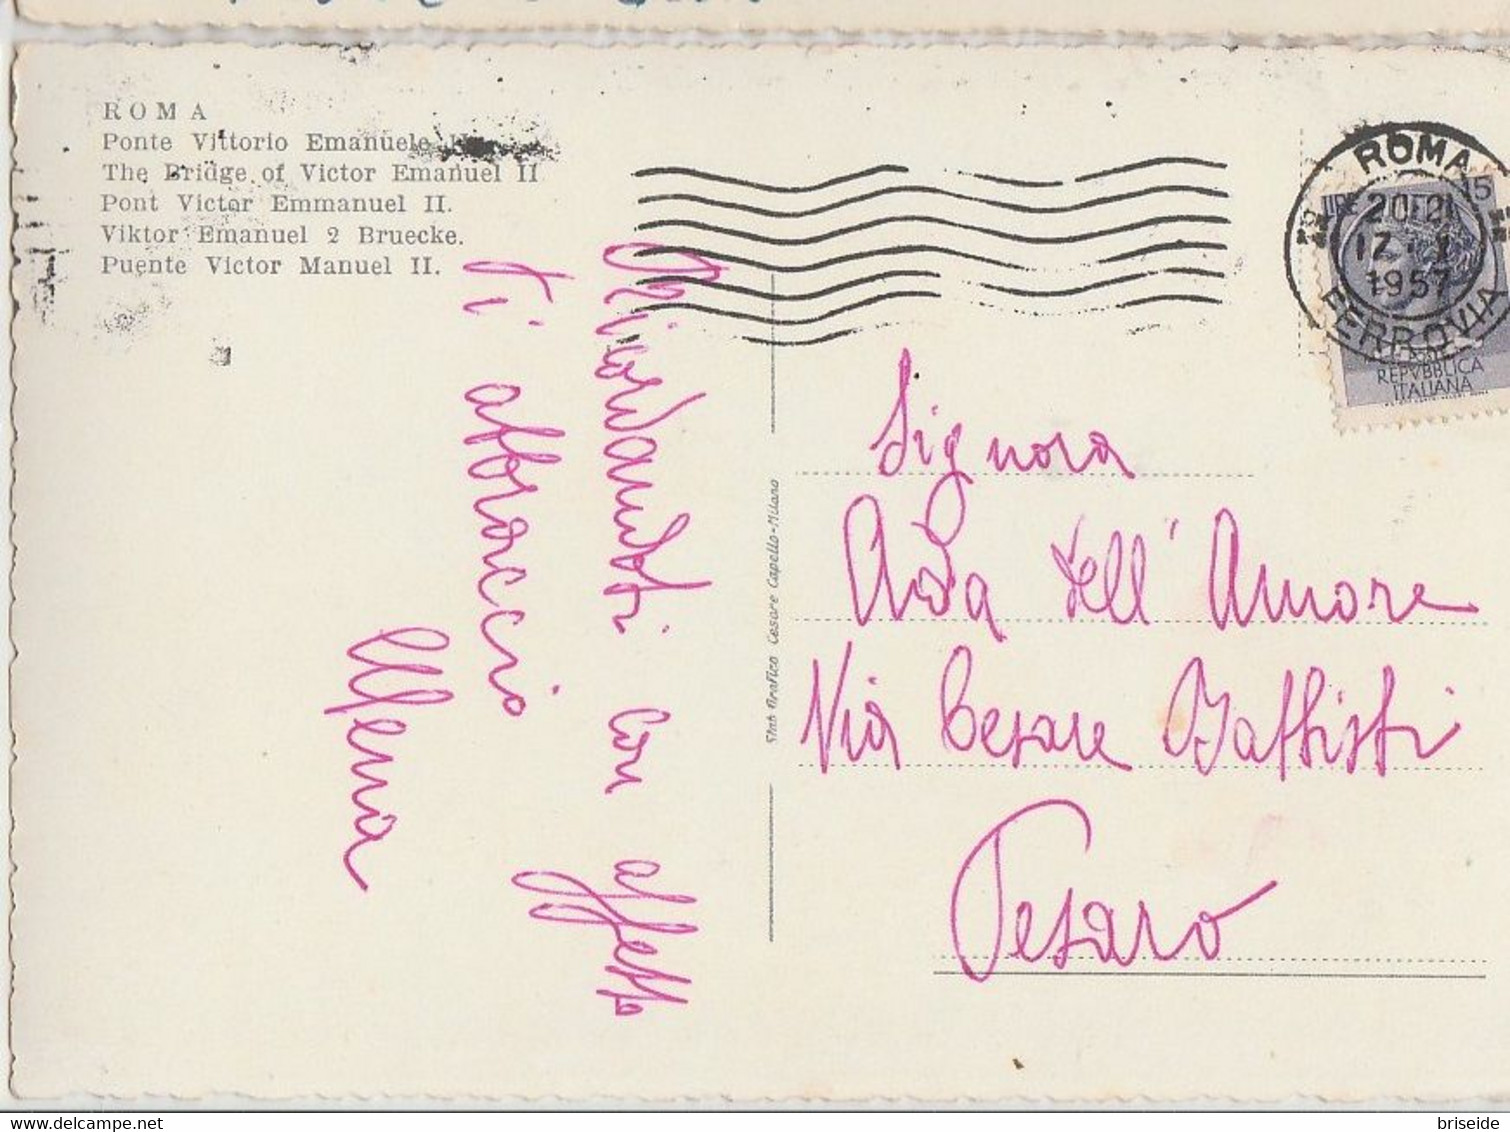 ROMA
Ponte Vittorio Emanuele II
The Bridge of Victor Emanuel II
Pont Victor Emmanuel II.
Viktor Emanuel 2 Bruecke.
Puente Victor Manuel II.
Ricordandoti con affetto
ti abbraccio
Stab Grafico Cesare Capello-Milano
ROMA
20-21
1957
FERROVIA
LIRE 15
REPVBBLICA
ITALIANA
Signora
Ada dell'Amore
Via Cesare Battisti
Pesaro
briseide